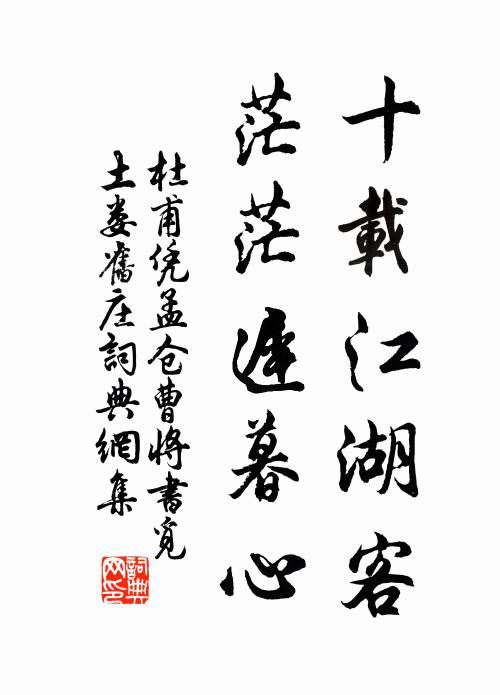 十載江湖客
茫茫遲暮心
杜甫凭孟仓曹將書覓
土娄舊庄詞典網集
詞典网印